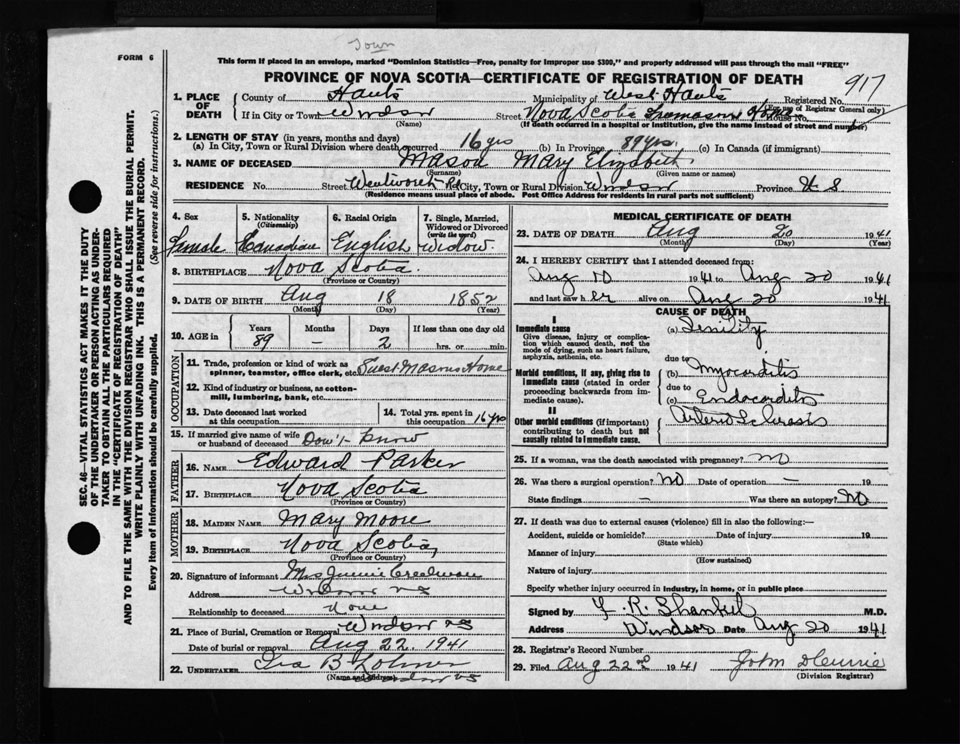 Town
FORM 6
This form if placed in an envelope, marked "Dominion Statistics—Free, penalty for improper use $300," and properly addressed will pass through the mail "FREE"
PROVINCE OF NOVA SCOTIA—CERTIFICATE OF REGISTRATION OF DEATH
917
1. PLACE OF DEATH County of Hants Municipality of West Hants Registered No.
(For use of Registrar General only)
If in City or Town Windsor Street Nova Scotia Freemasons Home House No.
(Name) (If death occurred in a hospital or institution, give the name instead of street and number)
2. LENGTH OF STAY (in years, months and days)
(a) In City, Town or Rural Division where death occurred 16 yrs (b) In Province 89 yrs. (c) In Canada (if immigrant)
3. NAME OF DECEASED Mason Mary Elizabeth
(Surname) (Given name or names)
RESIDENCE No. Street Wentworth Rd City, Town or Rural Division Windsor Province N S
(Residence means usual place of abode. Post Office Address for residents in rural parts not sufficient)
4. Sex Female
5. Nationality (Citizenship) Canadian
6. Racial Origin English
7. Single, Married, Widowed or Divorced (write the word) Widow.
8. BIRTHPLACE Nova Scotia.
(Province or Country)
9. DATE OF BIRTH Aug 18 1852
(Month) (Day) (Year)
10. AGE in Years 89 Months — Days 2 If less than one day old
hrs. or min.
OCCUPATION
11. Trade, profession or kind of work as spinner, teamster, office clerk, etc. Guest Masons Home
12. Kind of industry or business, as cotton-mill, lumbering, bank, etc.
13. Date deceased last worked at this occupation
14. Total yrs. spent in this occupation 16 yrs
15. If married give name of wife or husband of deceased Don't know
FATHER
16. NAME Edward Parker
17. BIRTHPLACE Nova Scotia
(Province or Country)
MOTHER
18. MAIDEN NAME Mary Moore
19. BIRTHPLACE Nova Scotia,
(Province or Country)
20. Signature of informant Mrs Jennie
Address Windsor NS
Relationship to deceased None
21. Place of Burial, Cremation or Removal Windsor NS
Date of burial or removal Aug 22. 1941
22. UNDERTAKER Ira B
(Name and Address) Windsor NS
MEDICAL CERTIFICATE OF DEATH
23. DATE OF DEATH Aug 20 1941
(Month) (Day) (Year)
24. I HEREBY CERTIFY that I attended deceased from:
Aug 1941 to Aug 20 1941
and last saw her alive on Aug 20 1941
CAUSE OF DEATH
I
Immediate cause (a) Senility
Give disease, injury or complication which caused death, not the mode of dying, such as heart failure, asphyxia, asthenia, etc.
due to
Morbid conditions, if any, giving rise to immediate cause (stated in order proceeding backwards from immediate cause). (b) Myocarditis
due to
(c) Endocarditis
II
Other morbid conditions (if important) contributing to death but not causally related to immediate cause. Arterio Sclerosis
25. If a woman, was the death associated with pregnancy? No
26. Was there a surgical operation? No Date of operation — 19
State findings — Was there an autopsy? No
27. If death was due to external causes (violence) fill in also the following:—
Accident, suicide or homicide? Date of injury 19
(State which)
Manner of injury
(How sustained)
Nature of injury
Specify whether injury occurred in industry, in home, or in public place
Signed by R. Shankel M.D.
Address Windsor Date Aug 20 1941
28. Registrar's Record Number
29. Filed Aug 22nd 1941 John
(Division Registrar)
SEC. 46—VITAL STATISTICS ACT MAKES IT THE DUTY
OF THE UNDERTAKER OR PERSON ACTING AS UNDER-
TAKER TO OBTAIN ALL THE PARTICULARS REQUIRED
IN THE "CERTIFICATE OF REGISTRATION OF DEATH"
AND TO FILE THE SAME WITH THE DIVISION REGISTRAR WHO SHALL ISSUE THE BURIAL PERMIT.
WRITE PLAINLY WITH UNFADING INK. THIS IS A PERMANENT RECORD.
Every item of information should be carefully supplied. (See reverse side for instructions.)